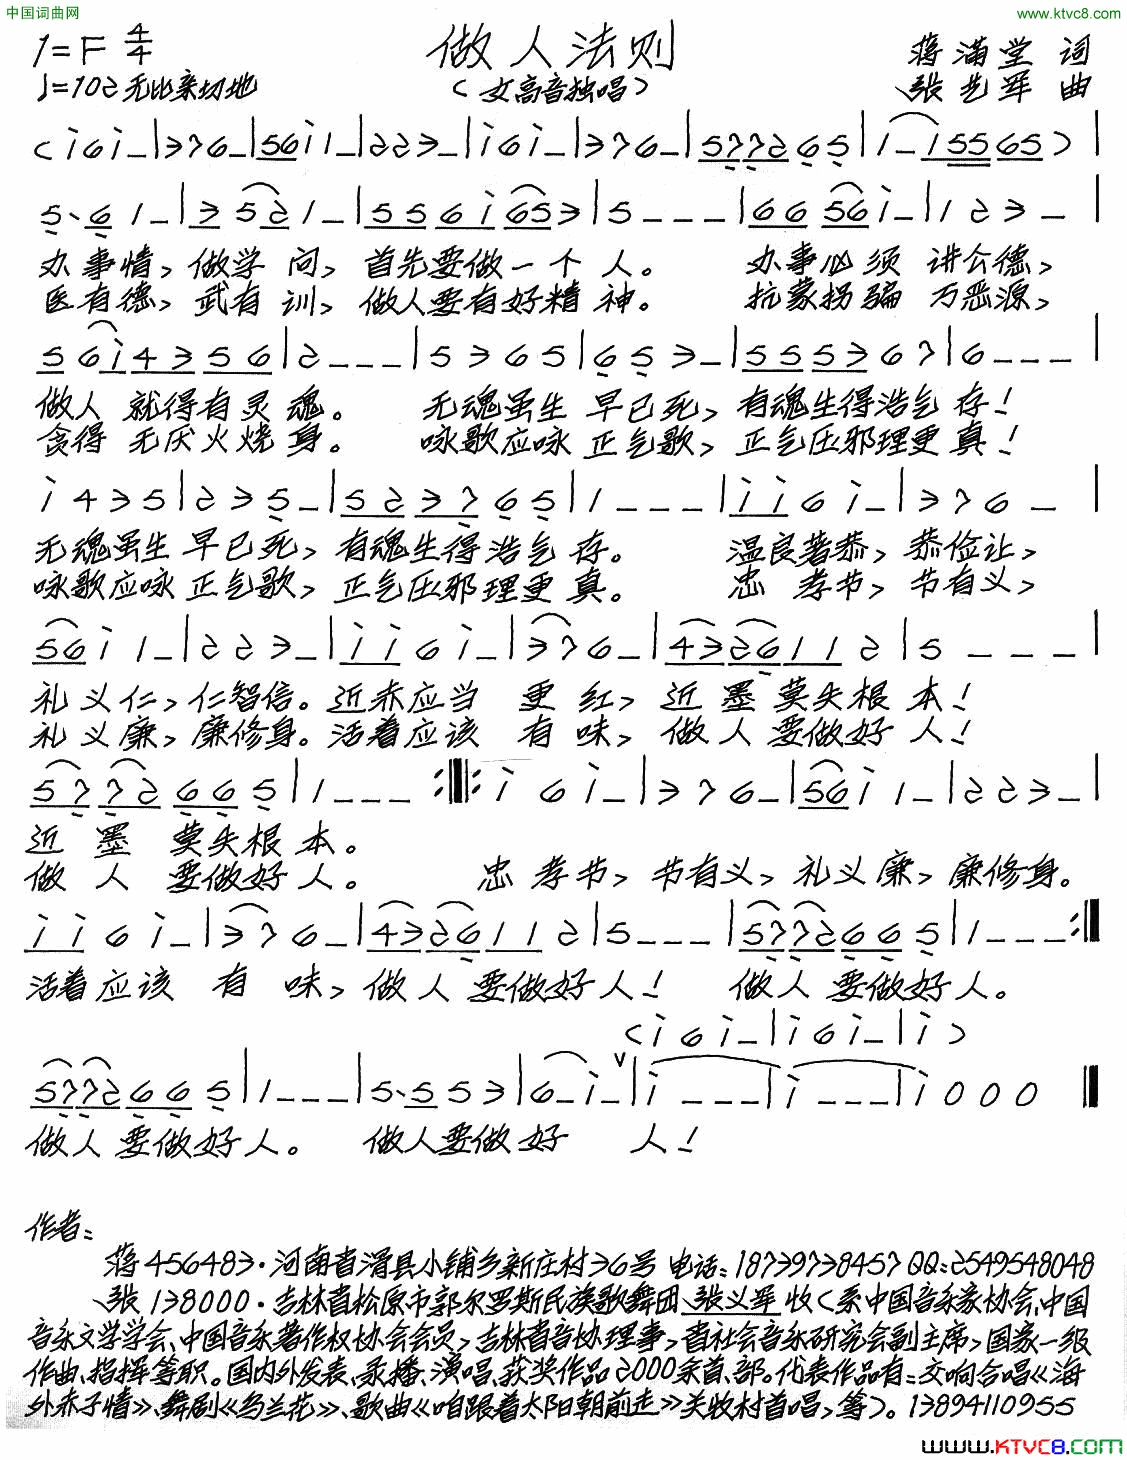 中国词曲网
www.ktvc8.com
1=F 4/4
做人法则
蒋满堂 词
♩=102 无比亲切地
(女高音独唱)
张艺军 曲
(i 6 i - | 3 7 6 - | 5 6 i 1 - | 2 2 3 - | i 6 i - | 3 7 6 - | 5 7 7 2 6 5 | 1 - 1 5 5 6 5) |
5· 6 1 - | 3 5 2 1 - | 5 5 6 i 6 5 3 | 5 - - - | 6 6 5 6 i - | 1 2 3 - |
办事情,做学问,首先要做一个人。 办事必须讲公德,
医有德,武有训,做人要有好精神。 抗蒙拐骗万恶源,
5 6 i 4 3 5 6 | 2 - - - | 5 3 6 5 | 6 5 3 - | 5 5 5 3 6 7 | 6 - - - |
做人就得有灵魂。 无魂虽生早已死,有魂生得浩气存!
贪得无厌火烧身。 咏歌应咏正气歌,正气压邪理更真!
i 4 3 5 | 2 3 5 - | 5 2 3 7 6 5 | 1 - - - | i i 6 i - | 3 7 6 - |
无魂虽生早已死,有魂生得浩气存。 温良著恭,恭俭让,
咏歌应咏正气歌,正气压邪理更真。 忠孝节,节有义,
5 6 i 1 - | 2 2 3 - | i i 6 i - | 3 7 6 - | 4 3 2 6 1 1 2 | 5 - - - |
礼义仁,仁智信。近赤应当更红,近墨莫失根本!
礼义廉,廉修身。活着应该有味,做人要做好人!
5 7 7 2 6 6 5 | 1 - - - :‖: i 6 i - | 3 7 6 - | 5 6 i 1 - | 2 2 3 - |
近墨莫失根本。
做人要做好人。 忠孝节,节有义,礼义廉,廉修身。
i i 6 i - | 3 7 6 - | 4 3 2 6 1 1 2 | 5 - - - | 5 7 7 2 6 6 5 | 1 - - - :‖
活着应该有味,做人要做好人! 做人要做好人。
(i 6 i - | i 6 i - | i)
5 7 7 2 6 6 5 | 1 - - - | 5· 5 5 3 | 6 - i - ∨ | i - - - | i - - - | i 0 0 0 ‖
做人要做好人。 做人要做好人!
作者:
蒋456483·河南省滑县小铺乡新庄村36号 电话:18739738457 QQ:2549548048
张138000·吉林省松原市郭尔罗斯民族歌舞团、张义军收(系中国音乐家协会、中国
音乐文学学会、中国音乐著作权协会会员,吉林省音协理事,省社会音乐研究会副主席,国家一级
作曲、指挥等职。国内外发表、录播、演唱、获奖作品2000余首、部。代表作品有:交响合唱《海
外赤子情》、舞剧《乌兰花》、歌曲《咱跟着太阳朝前走》关牧村首唱,等)。13894110955
www.KTVC8.com